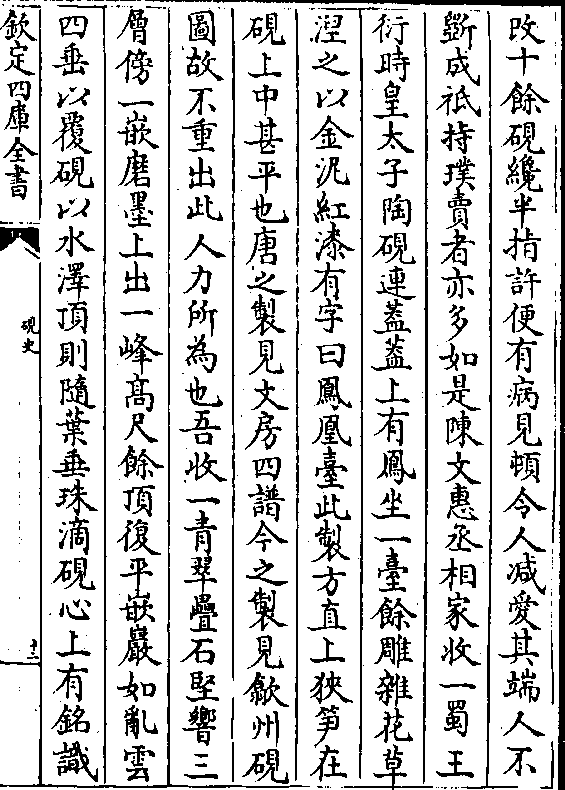 改十餘硯纔半指許便有病見頓令人減愛其端人不
斵成祗持璞賣者亦多如是陳文惠丞相家收一蜀王
衍時皇太子陶硯連蓋蓋上有鳳坐一臺餘雕雜花草
涅之以金泥紅漆有字曰鳳凰臺此製方直上狹笋在
硯上中甚平也唐之製見文房四譜今之製見歙州硯
圖故不重出此人力所為也吾收一青翠疊石堅響三
層傍一嵌磨墨上出一峰髙尺餘頂復平嵌巖如亂雲
四垂以覆硯以水澤頂則隨葉垂珠滴硯心上有銘識
欽定四庫全書
硯史
十二